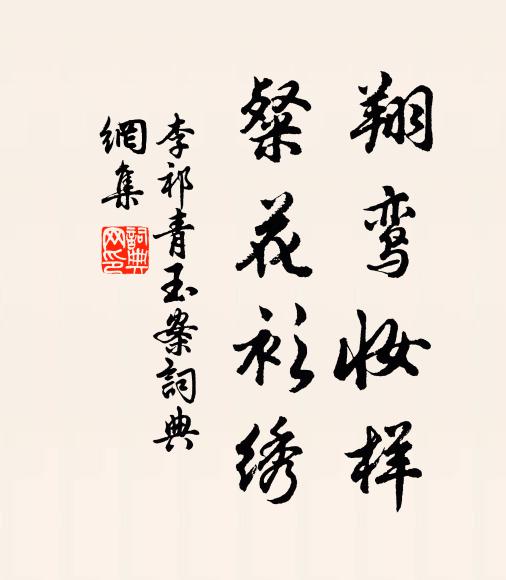 翔鸾妆样
粲花衫绣
李祁青玉案詞典
網集
詞典
网印